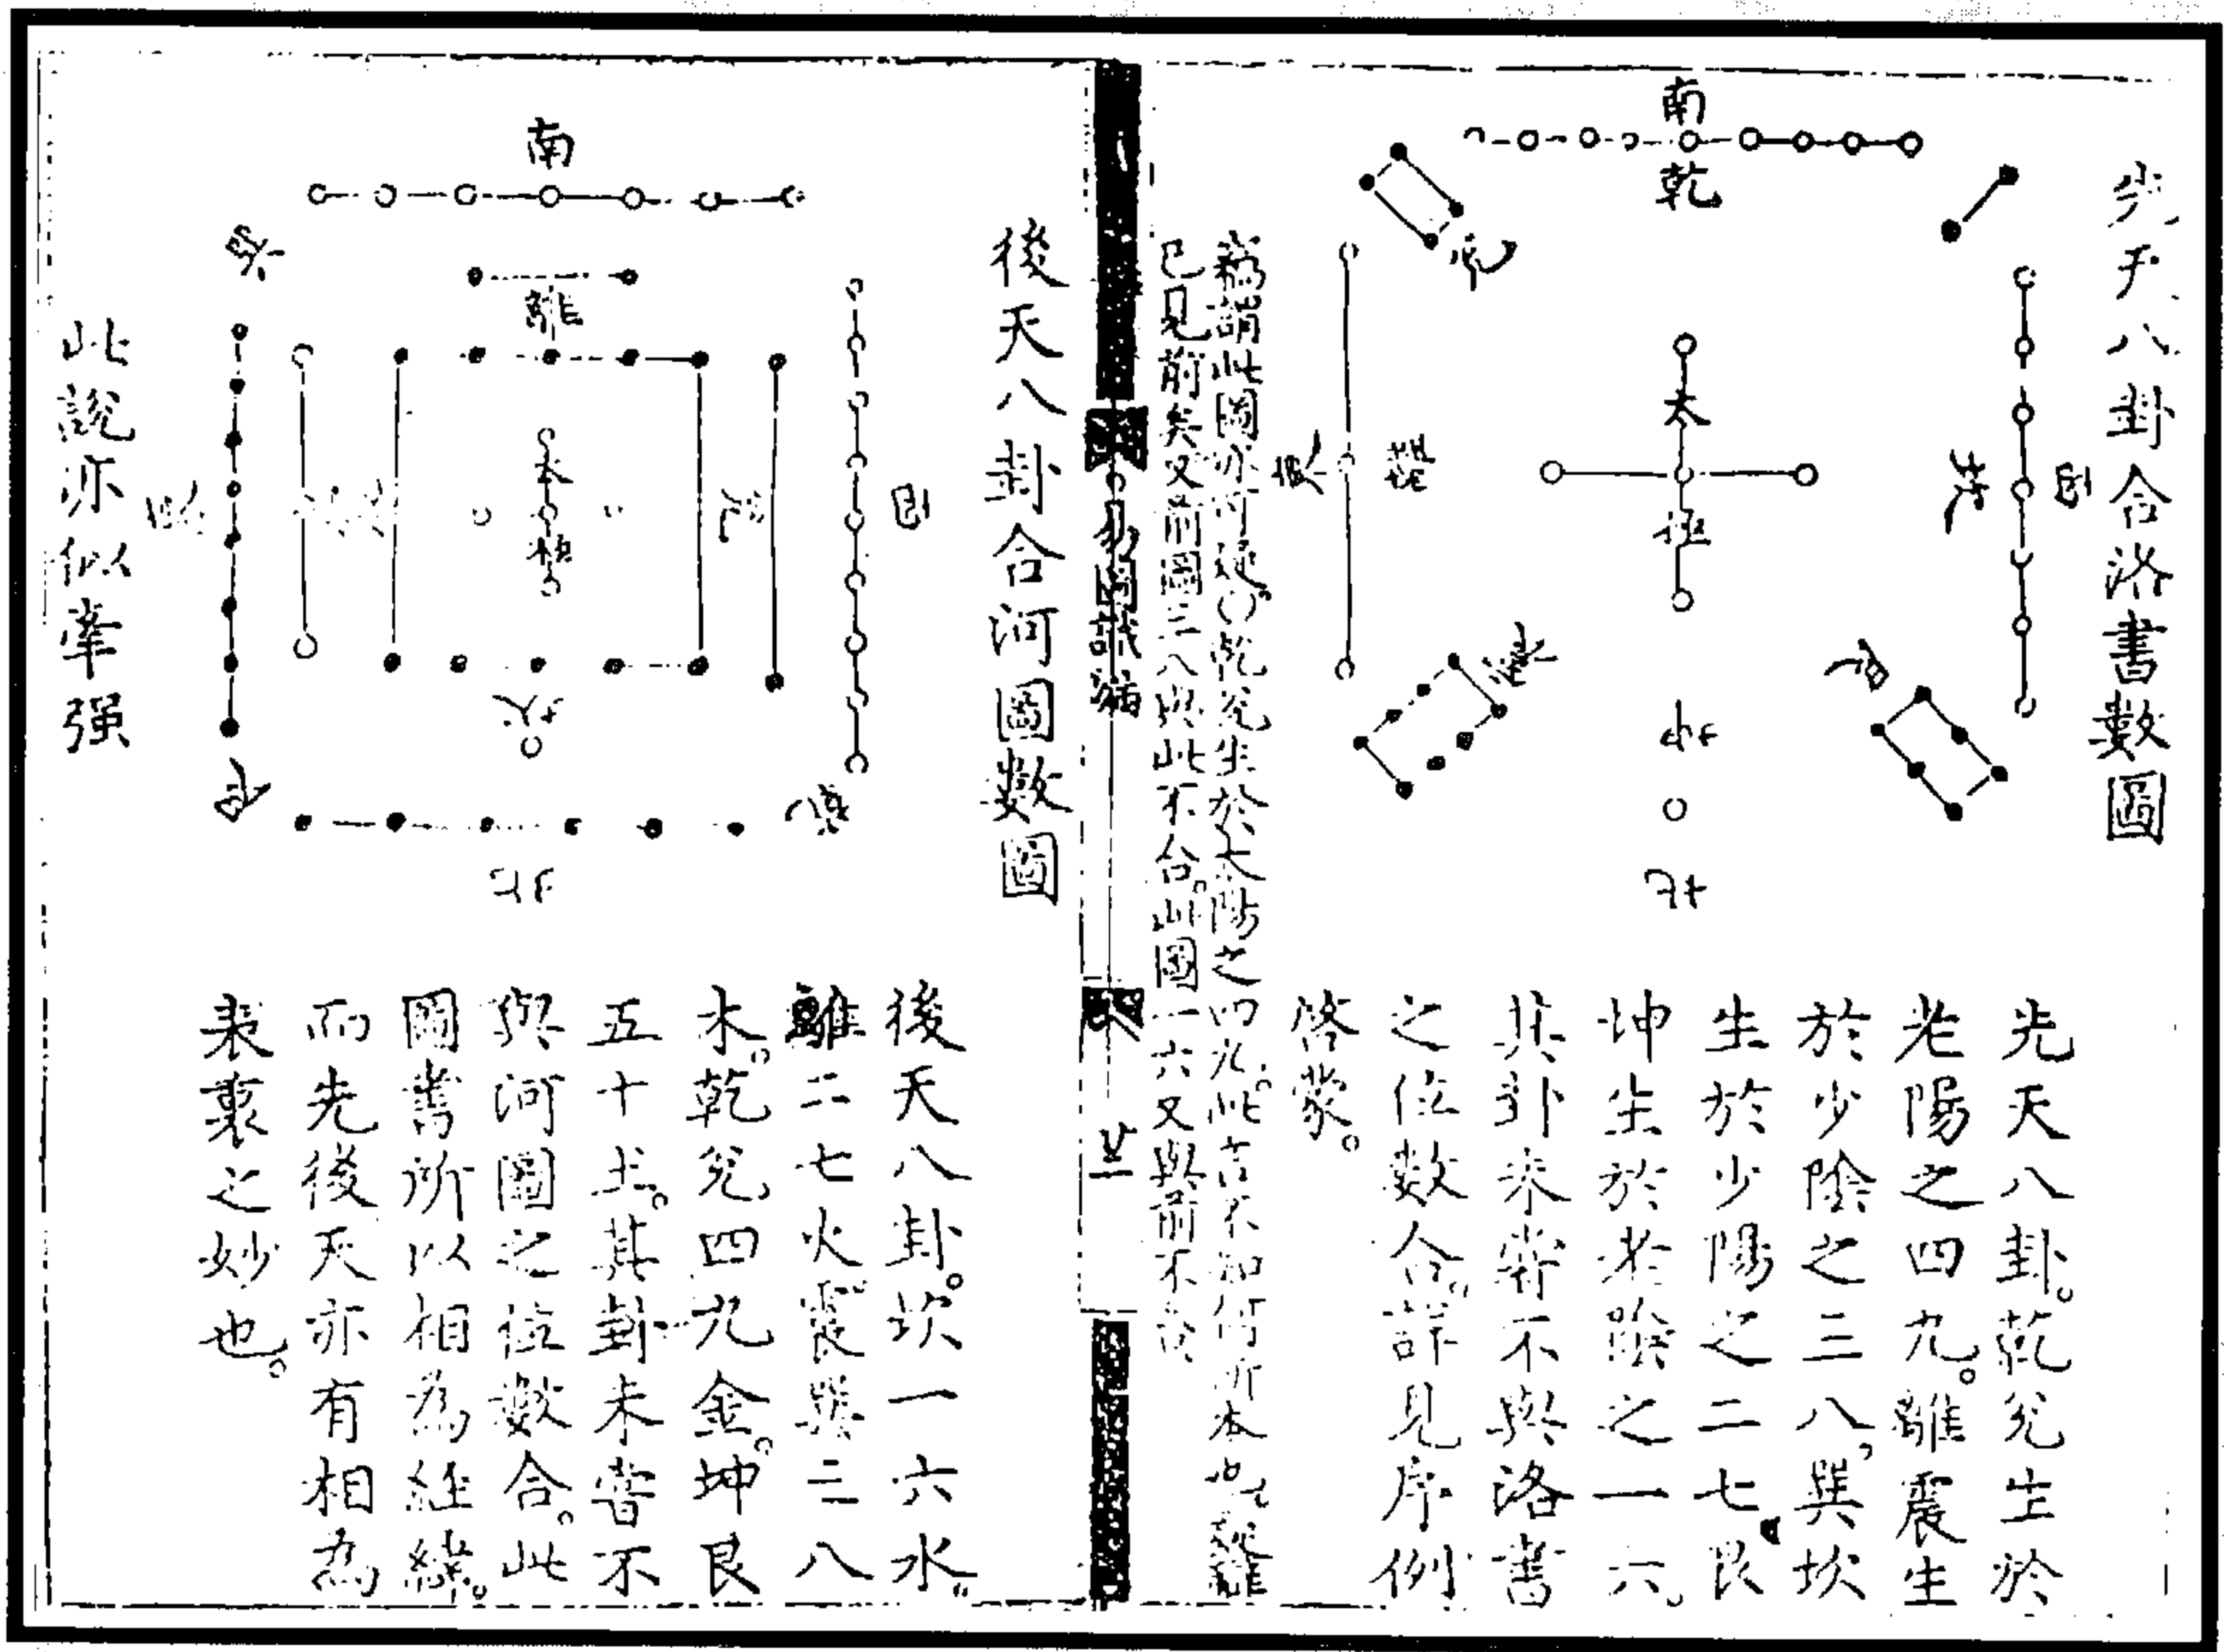 先天八卦合洛書數圖
南
乾
兌
離
太
極
坎
北
先天八卦。乾兌生於
老陽之四九。離震生
於少陰之三八。巽坎
生於少陽之二七。艮
坤生於老陰之一六。
其卦未嘗不與洛書
之位數合。詳見序例
啓蒙。
竊謂此圖亦可疑〇乾兌生於太陽之四九。此言不知何所本也
已見前矣又前圖三八與此不合。此圖一六又與前不合
易圖識漏
卄一
後天八卦合河圖數圖
南
離
太
極
兌
坎
北
後天八卦。坎一六水。
離二七火震巽三八
木。乾兌四九金。坤艮
五十土。其卦未嘗不
與河圖之位數合。此
圖書所以相為經緯。
而先後天亦有相為
表裏之妙也。
此說亦似牽强